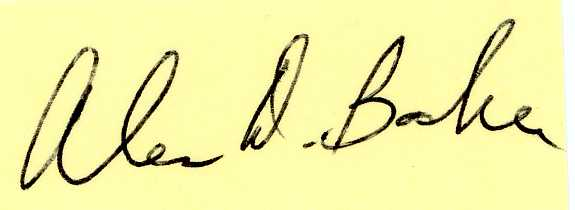 Alex D. Baker